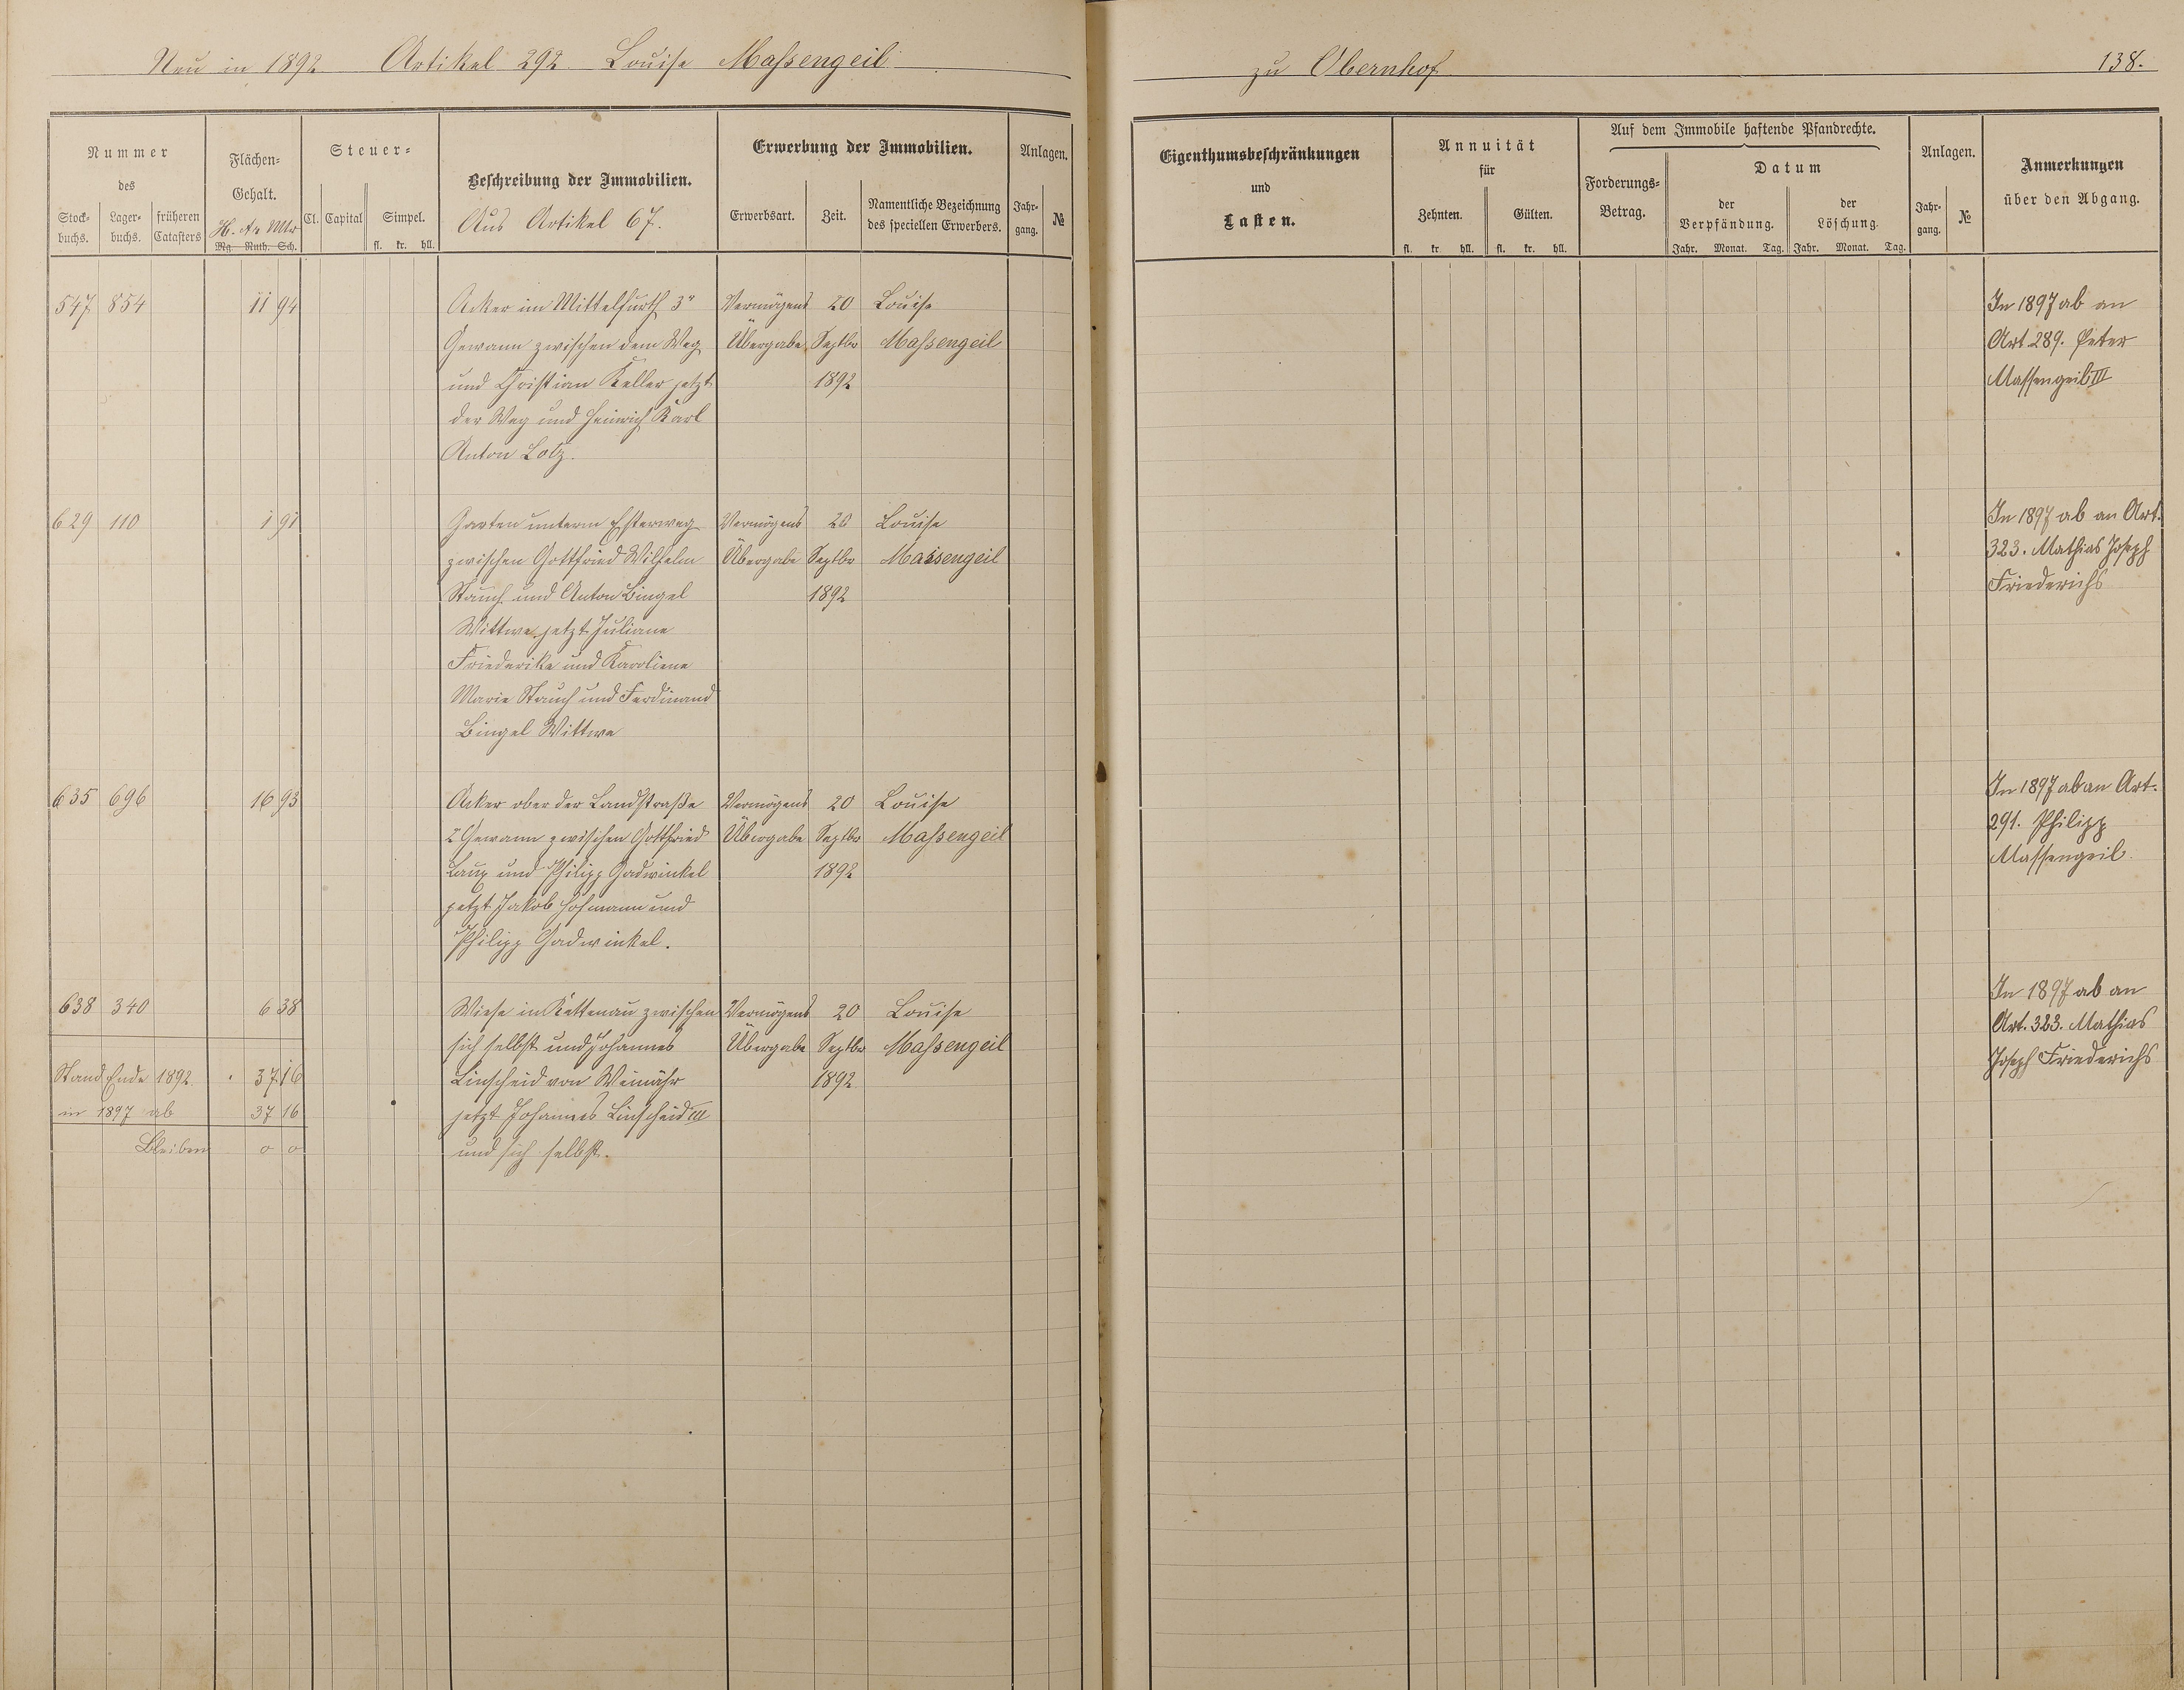 Neu in 1892 Artikel 292. Louise Maßengeil
zu Obernhof 138.
Nummer
des
Stock-
buchs.
Lager-
buchs.
früheren
Catasters
Flächen-
Gehalt.
H. Ar. Mtr
Mg. Ruth. Sch.
Steuer-
Cl. Capital Simpel.
fl. kr. hll.
Beschreibung der Immobilien.
Aus Artikel 67.
Erwerbung der Immobilien.
Erwerbsart. Zeit.
Namentliche Bezeichnung
des speciellen Erwerbers.
Anlagen.
Jahr-
gang.
№
Eigenthumsbeschränkungen
und
Lasten.
Annuität
für
Zehnten. Gülten.
fl. kr. hll. fl. kr. hll.
Auf dem Immobile haftende Pfandrechte.
Forderungs-
Betrag.
Datum
der
Verpfändung.
der
Löschung.
Jahr. Monat. Tag. Jahr. Monat. Tag.
Anlagen.
Jahr-
gang.
№
Anmerkungen
über den Abgang.
547 854 11 94 Acker im Mittelfurth 3" Vermögens 20 Louise In 1897 ab an
Gewann zwischen dem Weg Übergabe Septbr Maßengeil Art. 289. Peter
und Christian Keller jetzt 1892 Massengeil III
der Weg und Heinrich Karl
Anton Lotz.
629 110 1 91 Garten unterm Esterweg Vermögens 20 Louise In 1897 ab an Art.
zwischen Gottfried Wilhelm Übergabe Septbr Massengeil 323. Mathias Joseph
Stauch und Anton Bingel 1892 Friederichs
Wittwe jetzt Juliane
Friederike und Karoliene
Marie Stauch und Ferdinand
Bingel Wittwe
635 696 16 93 Acker ober der Landstraße Vermögens 20 Louise In 1897 ab an Art.
2 Gewann zwischen Gottfried Übergabe Septbr Maßengeil 291. Philipp
Laux und Philipp Gadwinkel 1892 Massengeil.
jetzt Jakob Hofmann und
Philipp Gadwinkel.
638 340 6 38 Wiese in Kettenau zwischen Vermögens 20 Louise In 1897 ab an
sich selbst und Johannes Übergabe Septbr Maßengeil Art. 323. Mathias
Stand Ende 1892. 37 16 Linscheid von Weinähr 1892. Joseph Friederichs
in 1897 ab 37 16 jetzt Johannes Linscheid III
Bleiben 0 0 und sich selbst.